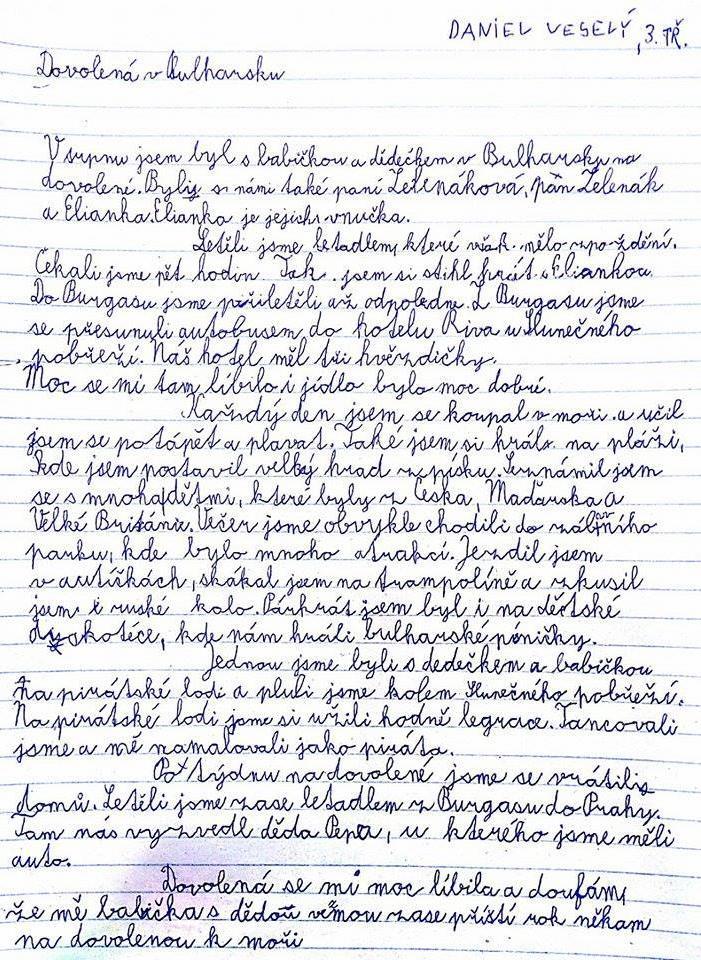 DANIEL VESELÝ, 3. TŘ.
Dovolená v Bulharsku
V srpnu jsem byl s babičkou a dědečkem v Bulharsku na
dovolení. Byly s námi také paní Zelenáková, pan Zelenák
a Elianka. Elianka je jejich vnučka.
Letěli jsme letadlem, které však mělo zpoždění.
Čekali jsme pět hodin. Tak jsem si stihl hrát s Eliankou.
Do Burgasu jsme přiletěli až odpoledne. Z Burgasu jsme
se přesunuli autobusem do hotelu Riva u Slunečného
pobřeží. Náš hotel měl tři hvězdičky.
Moc se mi tam líbilo i jídlo bylo moc dobré.
Každý den jsem se koupal v moři a učil
jsem se potápět a plavat. Také jsem si hrál na pláži,
kde jsem postavil velký hrad z písku. Seznámil jsem
se s mnoha dětmi, které byly z Česka, Maďarska a
Velké Británie. Večer jsme obvykle chodili do zábavního
parku, kde bylo mnoho atrakcí. Jezdil jsem
v autíčkách, skákal jsem na trampolíně a zkusil
jsem i ruské kolo. Párkrát jsem byl i na dětské
dyskotéce, kde nám hráli bulharské písničky.
Jednou jsme byli s dedečkem a babičkou
na pirátské lodi a pluli jsme kolem Slunečného pobřeží.
Na pirátské lodi jsme si užili hodně legrace. Tancovali
jsme a mě namalovali jako piráta.
Po týdnu na dovolené jsme se vrátili
domů. Letěli jsme zase letadlem z Burgasu do Prahy.
Tam nás vyzvedl děda Pepa, u kterého jsme měli
auto.
Dovolená se mi moc líbila a doufám,
že mě babička s dědou vemou zase příští rok někam
na dovolenou k moři